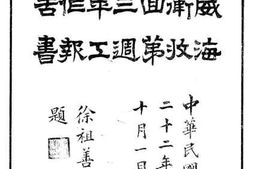 威海
衛收
回第
三週
年工
作報
告書
中華民國
二十二年
十月一日
徐祖善
題